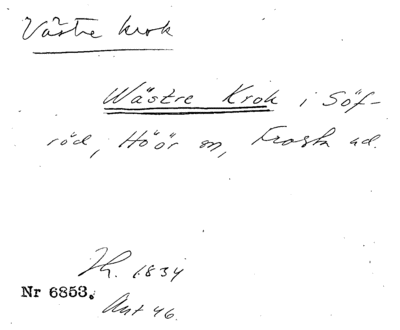 Västre krok
Wästre Krok i Söf-
röd, Höör sn, Frosta hd.
Th. 1834
Nr 6853.
Ant 46.